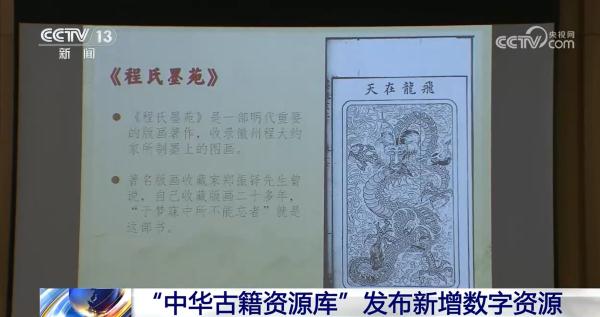 CCTV 13
新闻
央视网
CCTV.com
《程氏墨苑》
《程氏墨苑》是一部明代重要
的版画著作，收录徽州程大约
家所制墨上的图画。
著名版画收藏家郑振铎先生曾
说，自己收藏版画二十多年，
“于梦寐中所不能忘者”就是
这部书。
天在龍飛
“中华古籍资源库”发布新增数字资源